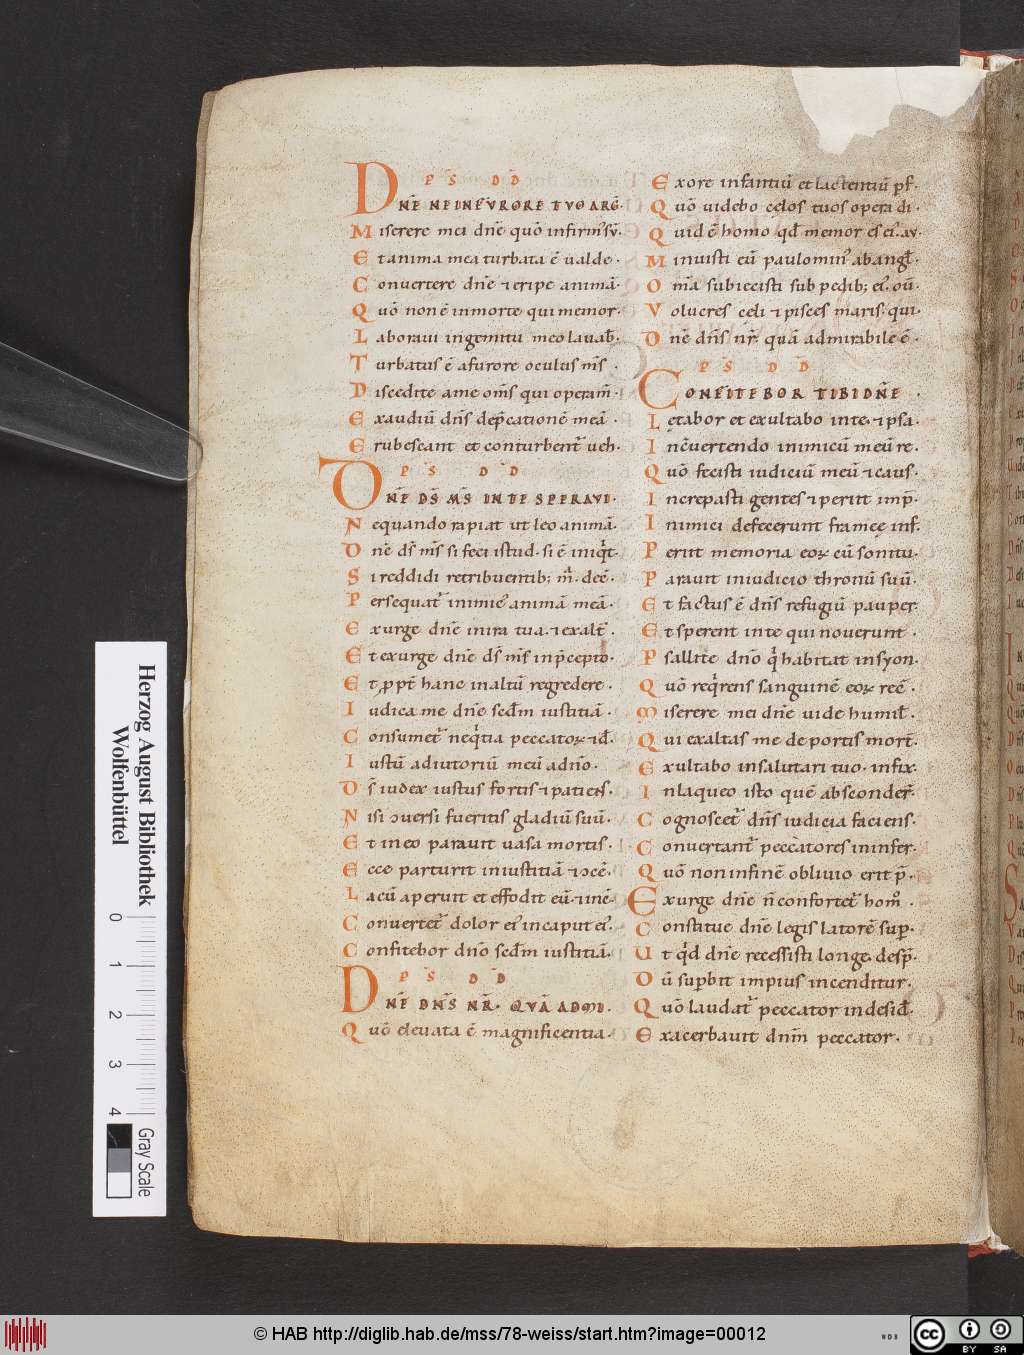 PS̄ DD̄
DN̄E NE IN FURORE TUO ARG̅.
Miserere mei dn̄e quō infirm᷒ sū.
Et anima mea turbata ē ualde.
Conuertere dn̄e ⁊ eripe animā.
Quō non ē inmorte qui memor.
Laboraui ingemitu meo lauab̄.
Turbatus ē afurore oculus m̄s.
Discedite ame om̄s qui operam̄.
Exaudiū dn̄s dep̄cationē meā.
Erubescant et conturbent᷒ ueh.
PS̄ DD̄
DN̄E DS̄ M̄S IN TE SPERAUI.
Nequando rapiat ut leo animā.
Dn̄e ds̄ m̄s si feci istud. si ē iniqͥt.
Si reddidi retribuentib; m̄. decē.
Persequat᷒ inimic᷒ animā meā.
Exurge dn̄e inira tua. ⁊ exalt̄.
Et exurge dn̄e ds̄ m̄s inp̄cepto.
Et ꝓpt̄ hanc inaltū regredere.
Iudica me dn̄e scd̄m iustitiā.
Consumet᷒ neqͥtia peccatoꝝ ⁊ d̄.
Iustū adiutoriū meū adn̄o.
Ds̄ iudex iustus fortis ⁊ patiens.
Nisi ɔuersi fueritis gladiū suū.
Et in eo parauit uasa mortis.
Ecce parturit iniustitiā ⁊ ɔcē.
Lacū aperuit et effodit eū. ⁊ inc̄.
Conuertet᷒ dolor ei᷒ incaput ei᷒.
Confitebor dn̄o scd̄m iustitiā.
PS̄ DD̄
DN̄E DN̄S NR̄. QUĀ ADMI.
Quō eleuata ē magnificentia.
Ex ore infantiū et lactentiū pf̄.
Quō uidebo celos tuos opera di.
Quid ē homo qd̄ memor es ei᷒. au.
Minuisti eū paulomin᷒ abangl̄.
Om̄a subiecisti sub pedib; ei᷒. ou̅.
Volucres celi ⁊ pisces maris. qui.
Dn̄e dn̄s nr̄ quā admirabile ē.
PS̄ DD̄
CONFITEBOR TIBI DN̄E.
Lętabor et exultabo inte. ⁊ psa.
In ɔuertendo inimicū meū re.
Quō fecisti iudiciū meū ⁊ caus.
Increpasti gentes ⁊ periit imp̄.
Inimici defecerunt frameę inf.
Periit memoria eoꝝ cū sonitu.
Parauit iniudicio thronū suū.
Et factus ē dn̄s refugiū pauper.
Et sperent inte qui nouerunt.
Psallite dn̄o qͥ habitat insyon.
Quō reqͥrens sanguinē eoꝝ rec̄.
Miserere mei dn̄e uide humil̄.
Qui exaltas me de portis mort̄.
Exultabo insalutari tuo. infix.
Inlaqueo isto quē absconder̄.
Cognoscet᷒ dn̄s iudicia faciens.
Conuertant᷒ peccatores ininfer.
Quō non infinē obliuio erit p̄.
Exurge dn̄e n̄ confortet᷒ homo.
Constitue dn̄e legis latorē sup̄.
Ut qͥd dn̄e recessisti longe. desp̄.
Dū sup̄bit impius incenditur.
Quō laudat᷒ peccator indesid̄.
Exacerbauit dn̄m peccator.
Herzog August Bibliothek
Wolfenbüttel
0 1 2 3 4
Gray Scale
© HAB http://diglib.hab.de/mss/78-weiss/start.htm?image=00012
WDB
CC BY SA